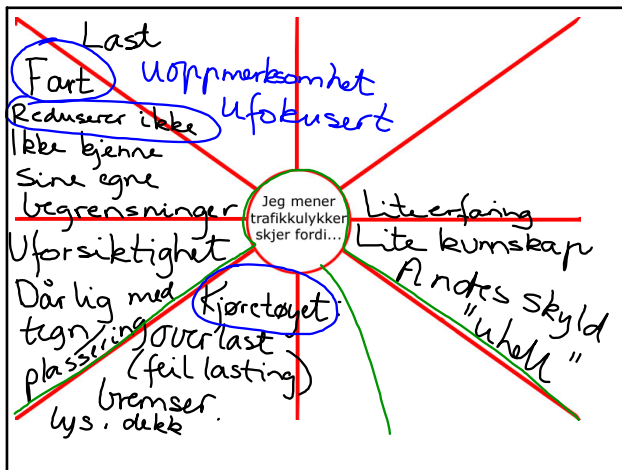 Last
Fart
Uoppmerksomhet
Ufokusert
Reduserer ikke
Ikke kjenne
Sine egne
begrensninger
Jeg mener
trafikkulykker
skjer fordi...
Lite erfaring
Lite kunnskap
Uforsiktighet
Dårlig med
tegn/
plassering
Kjøretøyet:
overlast
(feil lasting)
bremser
lys. dekk
Andes skyld
"uhell"